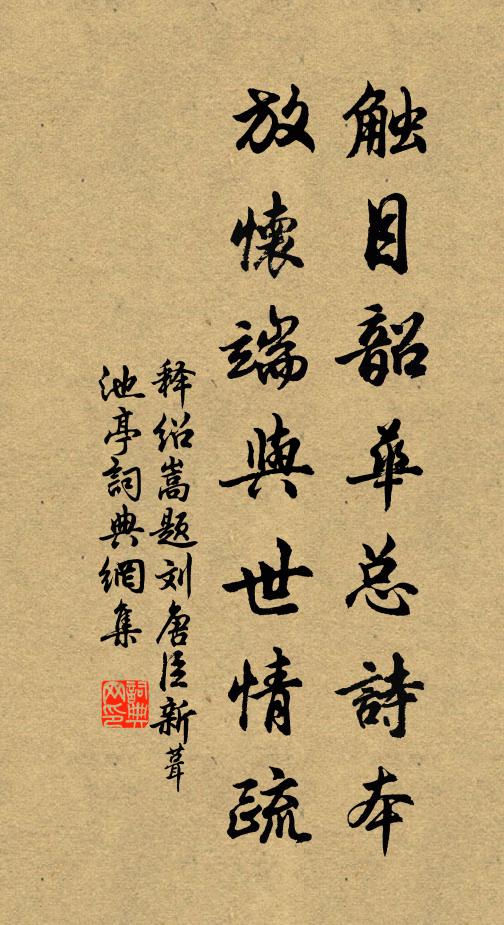 触目韶華总詩本
放懷端與世情疏
释绍嵩題刘唐臣新葺
池亭詞典網集
詞典网印